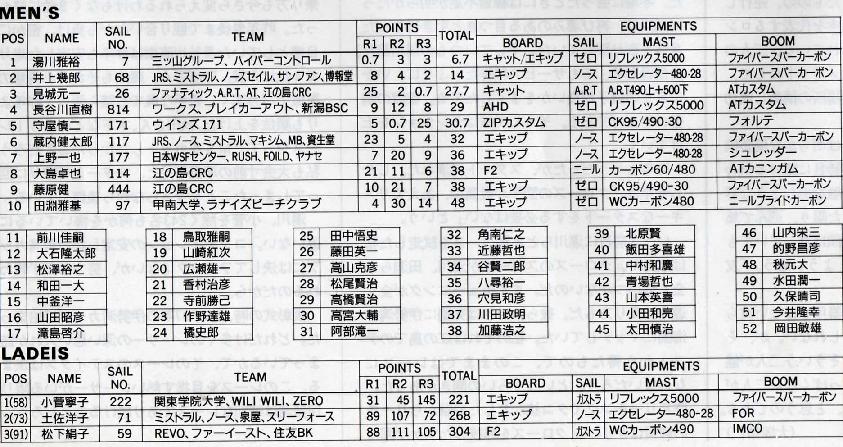 MEN'S
POS NAME SAIL NO. TEAM POINTS R1 R2 R3 TOTAL EQUIPMENTS BOARD SAIL MAST BOOM
1 湯川雅裕 7 三ッ山グループ、ハイパーコントロール 0.7 3 3 6.7 キャット/エキップ ゼロ リフレックス5000 ファイバースパーカーボン
2 井上幾郎 68 JRS、ミストラル、ノースセイル、サンファン、博報堂 8 4 2 14 エキップ ノース エクセレーター480-28 ファイバースパーカーボン
3 見城元一 26 ファナティック、A.R.T、AT、江の島CRC 25 2 0.7 27.7 キャット A.R.T A.R.T490上+500下 ATカスタム
4 長谷川直樹 814 ワークス、ブレイカーアウト、新潟BSC 9 12 8 29 AHD ゼロ リフレックス5000 ATカスタム
5 守屋慎二 171 ウインズ171 5 0.7 25 30.7 ZIPカスタム ゼロ CK95/490-30 フォルテ
6 蔵内健太郎 117 JRS、ノース、ミストラル、マキシム、MB、資生堂 23 5 4 32 エキップ ノース エクセレーター480-28 ファイバースパーカーボン
7 上野一也 177 日本WSFセンター、RUSH、FOILD、ヤナセ 7 20 9 36 エキップ ノース エクセレーター480-28 シュレッダー
8 大島卓也 114 江の島CRC 21 11 6 38 F2 ニール カーボン60/480 ATカニンガム
9 藤原健 444 江の島CRC 10 21 7 38 エキップ ゼロ CK95/490-30 ファイバースパーカーボン
10 田淵雅基 97 甲南大学、ラナイズビーチクラブ 4 30 14 48 エキップ ゼロ WCカーボン480 ニールプライドカーボン
11 前川佳嗣
12 大石隆太郎
13 松澤裕之
14 和田一大
15 中釜洋一
16 山田昭彦
17 滝島啓介
18 鳥取雅嗣
19 山崎紅次
20 広瀬雄一
21 香村治彦
22 寺前勝己
23 作野達雄
24 橘史郎
25 田中悟史
26 藤田英一
27 高山克彦
28 松尾賢治
29 高橋賢治
30 高宮大輔
31 阿部滝一
32 角南仁之
33 近藤哲也
34 谷賢二郎
35 八尋裕一
36 穴見和彦
37 川田政明
38 加藤浩之
39 北原賢
40 飯田多喜雄
41 中村和慶
42 青場哲也
43 山本英喜
44 小田和亮
45 太田慎治
46 山内栄三
47 的野昌彦
48 秋元大
49 水田潤一
50 久保晴司
51 今井隆幸
52 岡田敏雄
LADEIS
POS NAME SAIL NO. TEAM POINTS R1 R2 R3 TOTAL EQUIPMENTS BOARD SAIL MAST BOOM
1(58) 小菅寧子 222 関東学院大学、WILI WILI、ZERO 31 45 145 221 エキップ ガストラ リフレックス5000 ファイバースパーカーボン
2(73) 土佐洋子 71 ミストラル、ノース、泉屋、スリーフォース 89 107 72 268 エキップ ノース エクセレーター480-28 FOR
3(91) 松下絹子 59 REVO、ファーイースト、住友BK 88 111 105 304 F2 ガストラ WCカーボン490 IMCO